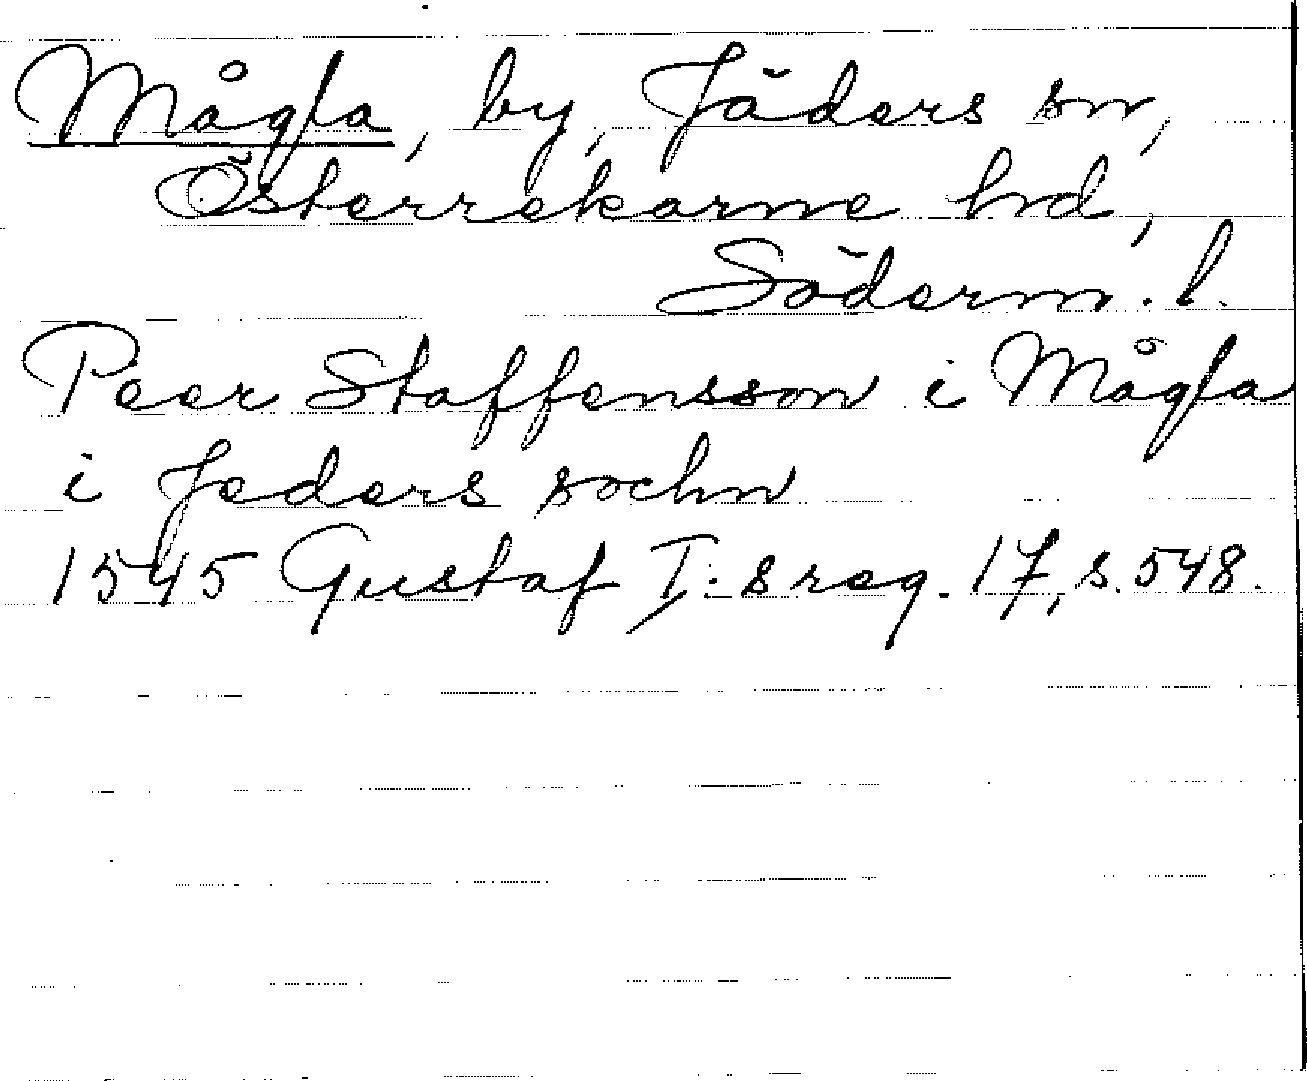 Mågla, by, Jäders sn,
Österrekarne hrd,
Söderm. l.
Peer Staffensson i Mågla
i Jeders sochn
1545 Gustaf I:s reg. 17, s. 548.